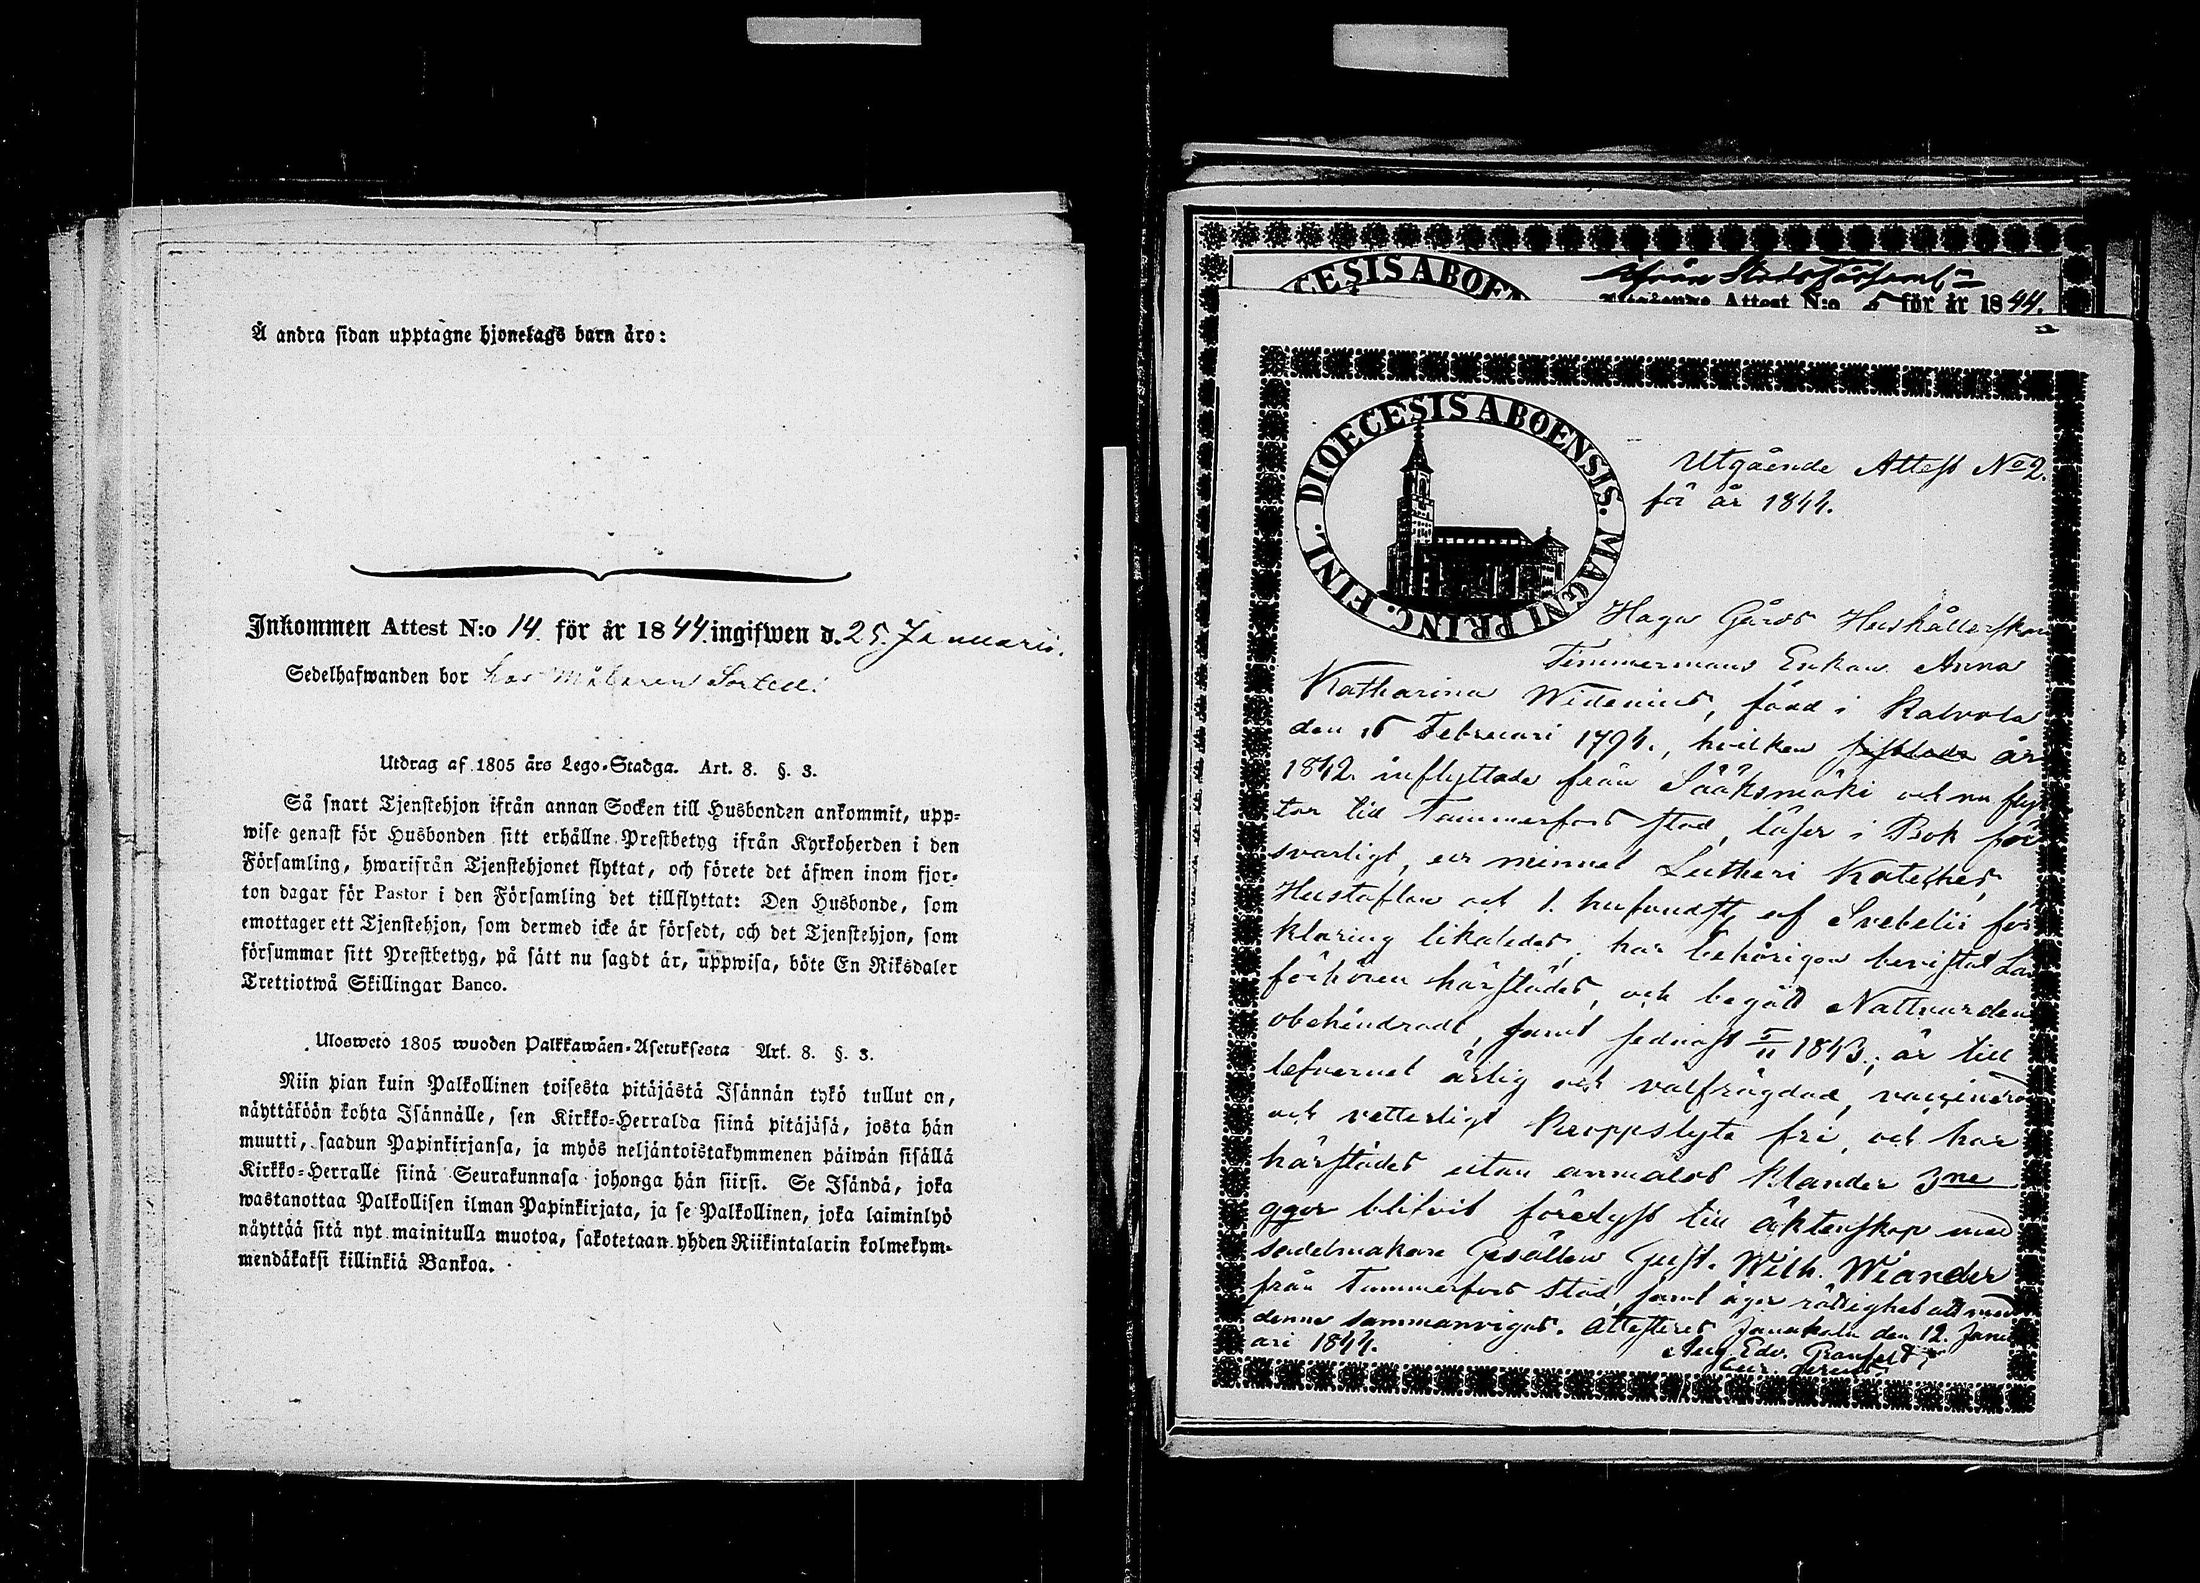 Å andra sidan upptagne hjonelags barn äro:
Inkommen Attest N:o 14. för år 1844. ingifwen d. 25. Januarii.
Sedelhafwanden bor hos Målaren
Utdrag af 1805 års Lego-Stadga. Art. 8. §. 3.
Så snart Tjenstehjon ifrån annan Socken till Husbonden ankommit, upp-
wise genast för Husbonden sitt erhållne Prestbetyg ifrån Kyrkoherden i den
Församling, hwarifrån Tjenstehjonet flyttat, och förete det äfwen inom fjor-
ton dagar för Pastor i den Församling det tillflyttat: Den Husbonde, som
emottager ett Tjenstehjon, som dermed icke är försedt, och det Tjenstehjon, som
försummar sitt Prestbetyg, på sätt nu sagdt är, uppwisa, böte En Riksdaler
Trettiotwå Skillingar Banco.
Ulosweto 1805 wuoden Palkkawäen-Asetuksesta Art. 8. §. 3.
Niin pian kuin Palkollinen toisesta pitäjästä Isännän tykö tullut on,
näyttäköön kohta Isännälle, sen Kirkko-Herralda siinä pitäjäsä, josta hän
muutti, saadun Papinkirjansa, ja myös neljäntoistakymmenen päiwän sisällä
Kirkko-Herralle siinä Seurakunnasa johonga hän siirsi. Se Isändä, joka
wastanottaa Palkollisen ilman Papinkirjata, ja se Palkollinen, joka laiminlyö
näyttää sitä nyt mainitulla muotoa, sakotetaan yhden Riikintalarin kolmekym-
mendäkaksi killinkiä Bankoa.
CESIS ABOEN
ifrån Stads Församl=
Utgående Attest N:o 5 för år 1844.
DIOECESIS ABOENSIS. MAGNI PRINC. FINL.
Utgående Attest No 2.
för år 1844.
Haga Gårds Hushållerskan
Timmermans Enkan Anna
Katharina Widenius, född i Kalvola
den 15 Februari 1794., hvilken år
1842 inflyttade från Sääksmäki och nu flyt
tar till Tammerfors stad, läser i Bok för
svarligt, ur minnet Lutheri Kateches,
Hustaflan och 1. hufvudst. af Svebelii för
klaring likaledes, har behörigen bevistat Läs
förhören härstädes, och begått Nattvarden
obehindradt, samt sednast 5/11 1843; är till
lefvernet ärlig och välfrägdad, vaccinerad
och vetterligt kroppslyte fri, och har
härstädes utan anmäldt klander 3ne
ggor blifvit förelyst till äktenskap med
sadelmakare Gesällen Gust. Wilh. Wiander
från Tammerfors Stad, samt äger rättighet att med
denne sammanvigas. Attesteras Janakkala den 12. Janu
ari 1844.
Aug. Edv.